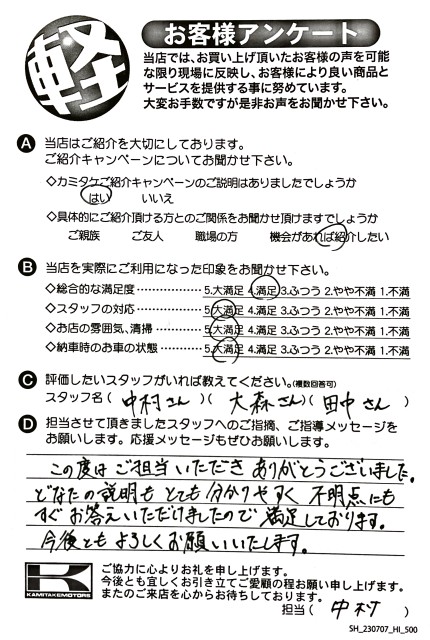 軽
お客様アンケート
当店では、お買い上げ頂いたお客様の声を可能
な限り現場に反映し、お客様により良い商品と
サービスを提供する事に努めています。
大変お手数ですが是非お声をお聞かせ下さい。
A 当店はご紹介を大切にしております。
ご紹介キャンペーンについてお聞かせ下さい。
◇カミタケご紹介キャンペーンのご説明はありましたでしょうか
はい いいえ
◇具体的にご紹介頂ける方とのご関係をお聞かせ頂けますでしょうか
ご親族 ご友人 職場の方 機会があれば紹介したい
B 当店を実際にご利用になった印象をお聞かせ下さい。
◇総合的な満足度……………5.大満足 4.満足 3.ふつう 2.やや不満 1.不満
◇スタッフの対応……………5.大満足 4.満足 3.ふつう 2.やや不満 1.不満
◇お店の雰囲気、清掃…………5.大満足 4.満足 3.ふつう 2.やや不満 1.不満
◇納車時のお車の状態…………5.大満足 4.満足 3.ふつう 2.やや不満 1.不満
C 評価したいスタッフがいれば教えてください。(複数回答可)
スタッフ名(中村さん)(大森さん)(田中さん)
D 担当させて頂きましたスタッフへのご指摘、ご指導メッセージを
お願いします。応援メッセージもぜひお願いします。
この度はご担当いただきありがとうございました。
どなたの説明もとても分かりやすく不明点にも
すぐお答えいただけましたので満足しております。
今後ともよろしくお願いいたします。
KAMITAKEMOTORS
ご協力に心よりお礼を申し上げます。
今後とも宜しくお引き立てご愛顧の程お願い申し上げます。
またのご来店を心からお待ちしております。
担当(中村)
SH_230707_HI_500